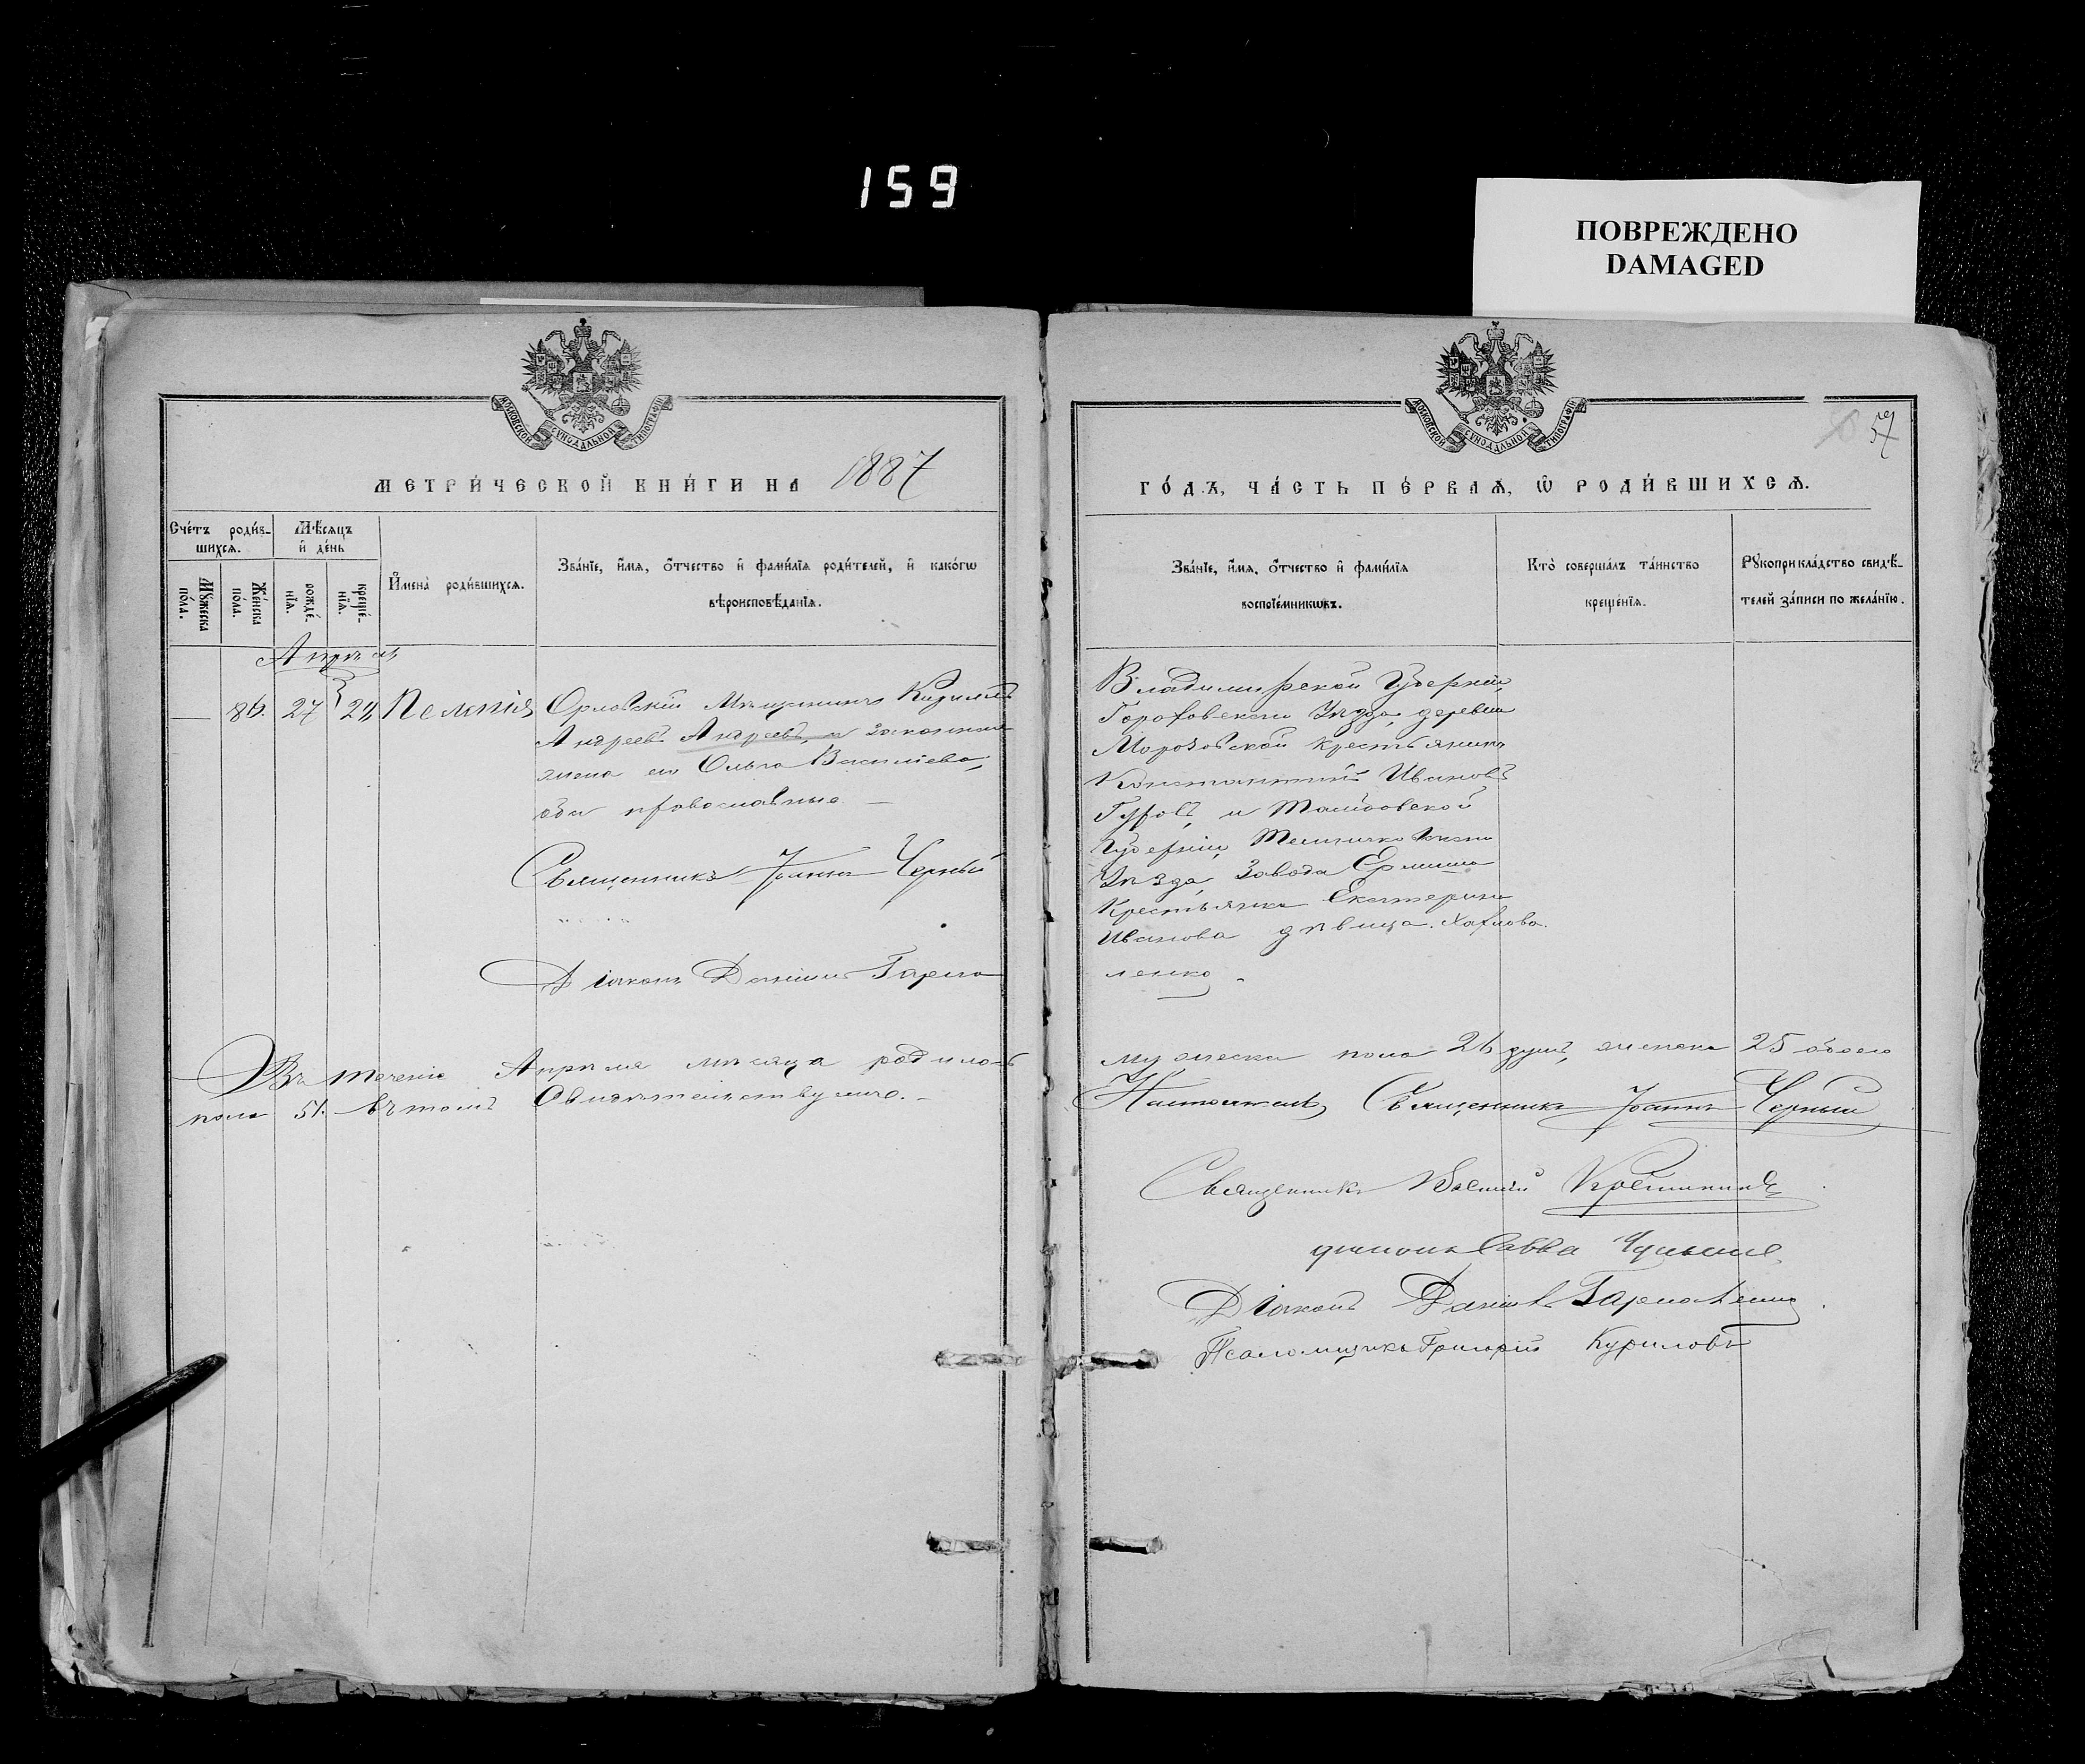 159
ПОВРЕЖДЕНО
DAMAGED
МОСКОВСКОЙ СѴНОДАЛЬНОЙ ТИПОГРАФІИ
МЕТРИ́ЧЕСКОЙ КНИ́ГИ НА 1887
Сче́тъ роди́в-
шихсѧ.
Мѣ́сѧцъ
и҆ де́нь
Мꙋ́жеска
по́ла.
Же́нска
по́ла.
рожде́-
нїѧ.
креще́-
нїѧ.
И҆мена̀ роди́вшихсѧ.
Зва́нїе, и҆́мѧ, ѻ҆́тчество и҆ фамилїѧ роди́телей, и҆ како́гѡ
вѣроисповѣ́данїѧ.
Апрѣль
86. 27 29 Пелагія
Орловскій Мѣщанинъ Кириллъ
Андреевъ Андреевъ, и законная
жена его Ольга Васильева,
оба православные.
Священникъ Іоаннъ Черный
Діаконъ Даніилъ Гармо
Въ теченіе Апрѣля мѣсяца родилось
пола 51. въ томъ свидѣтельствуемъ.
МОСКОВСКОЙ СѴНОДАЛЬНОЙ ТИПОГРАФІИ
57
ГО́ДЪ, ЧА́СТЬ ПЕ́РВАѦ, Ѡ҆ РОДИ́ВШИХСѦ.
Зва́нїе, и҆́мѧ, ѻ҆́тчество и҆ фамилїѧ
воспрїе́мникѡвъ.
Кто̀ соверша́лъ та́инство
креще́нїѧ.
Рꙋкоприкла́дство свидѣ́-
телей за́писи по жела́нїю.
Владимирской Губерніи,
Гороховскаго Уѣзда, деревни
Морозовской крестьянинъ
Константинъ Ивановъ
Гуровъ, и Тамбовской
Губерніи,
Уѣзда, Завода
Крестьянка Екатерина
Иванова дѣвица.
мужеска пола 26 душъ, женска 25 обоего
Настоятель, Священникъ Іоаннъ Черный
Священникъ
діаконъ Савва
Діаконъ Даніилъ Гармо
Псаломщикъ Григорій Куриловъ